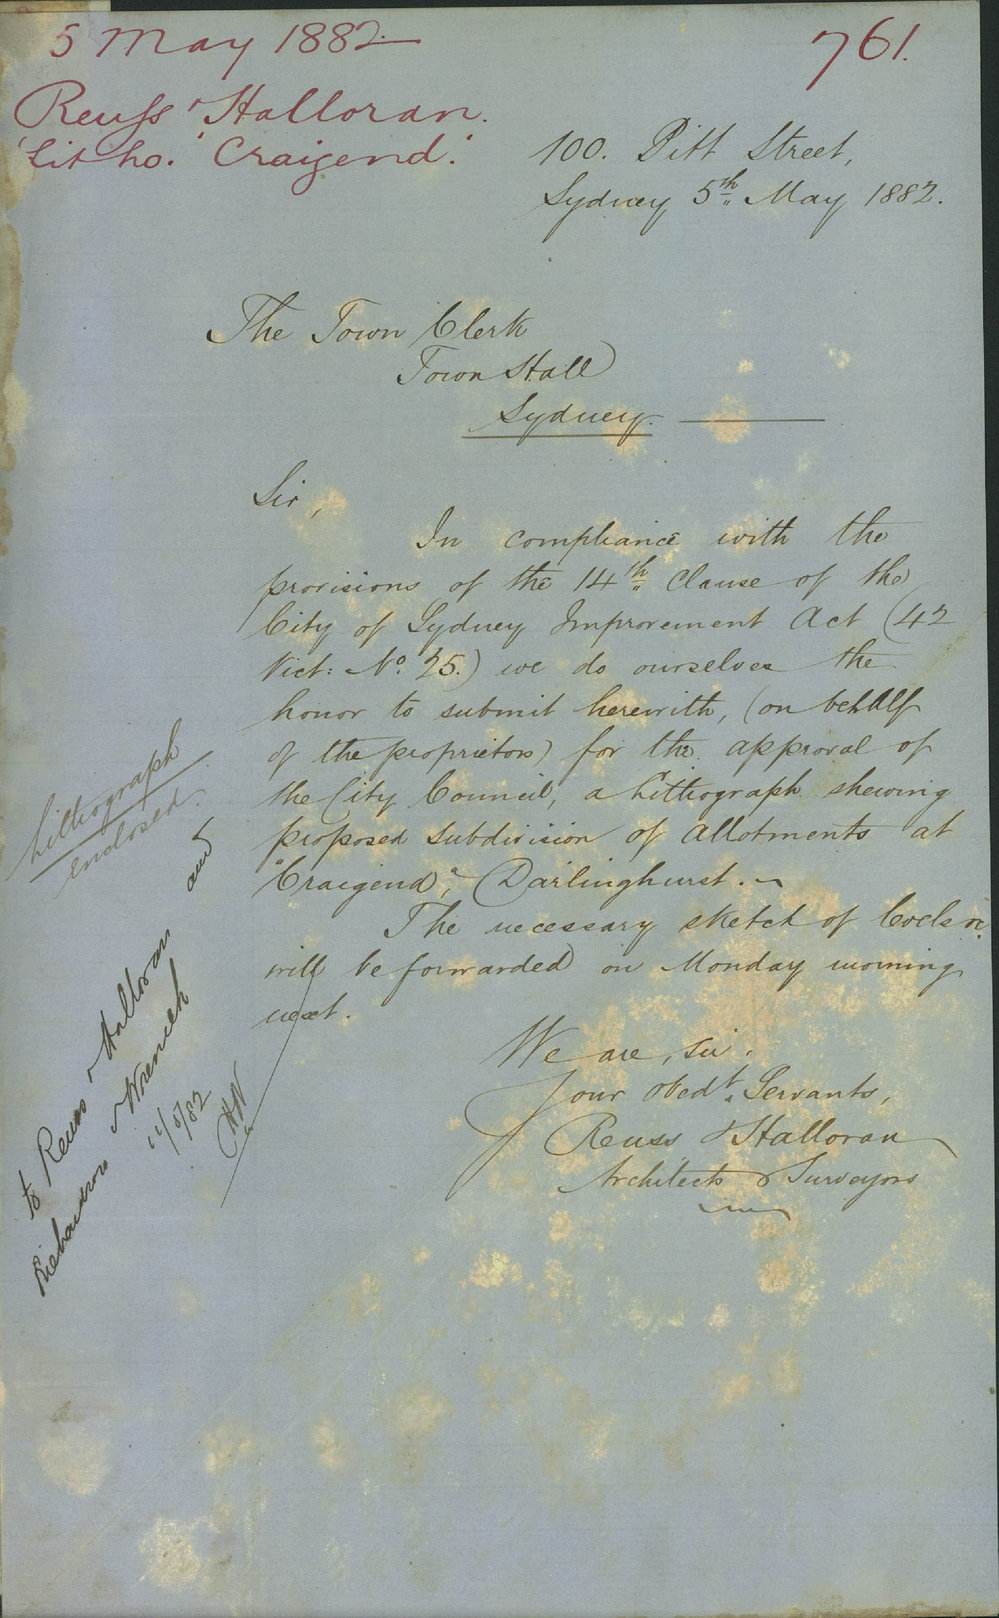 5 May 1882.
761.
Reuss & Halloran.
Litho. 'Craigend.'
100. Pitt Street,
Sydney 5th May 1882.
The Town Clerk
Town Hall
Sydney.
Sir,
In compliance with the
provisions of the 14th Clause of the
City of Sydney Improvement Act (42
Vict: No. 25.) we do ourselves the
honor to submit herewith, (on behalf
of the proprietors) for the approval of
the City Council, a Lithograph shewing
proposed subdivision of allotments at
"Craigend," Darlinghurst.
The necessary sketch of levels &c.
will be forwarded on Monday morning
next.
We are, Sir,
Your Obedt. Servants,
Reuss & Halloran
Architects & Surveyors
Lithograph
enclosed.
to Reuss & Halloran and
Richardson & Wrench
/5/82